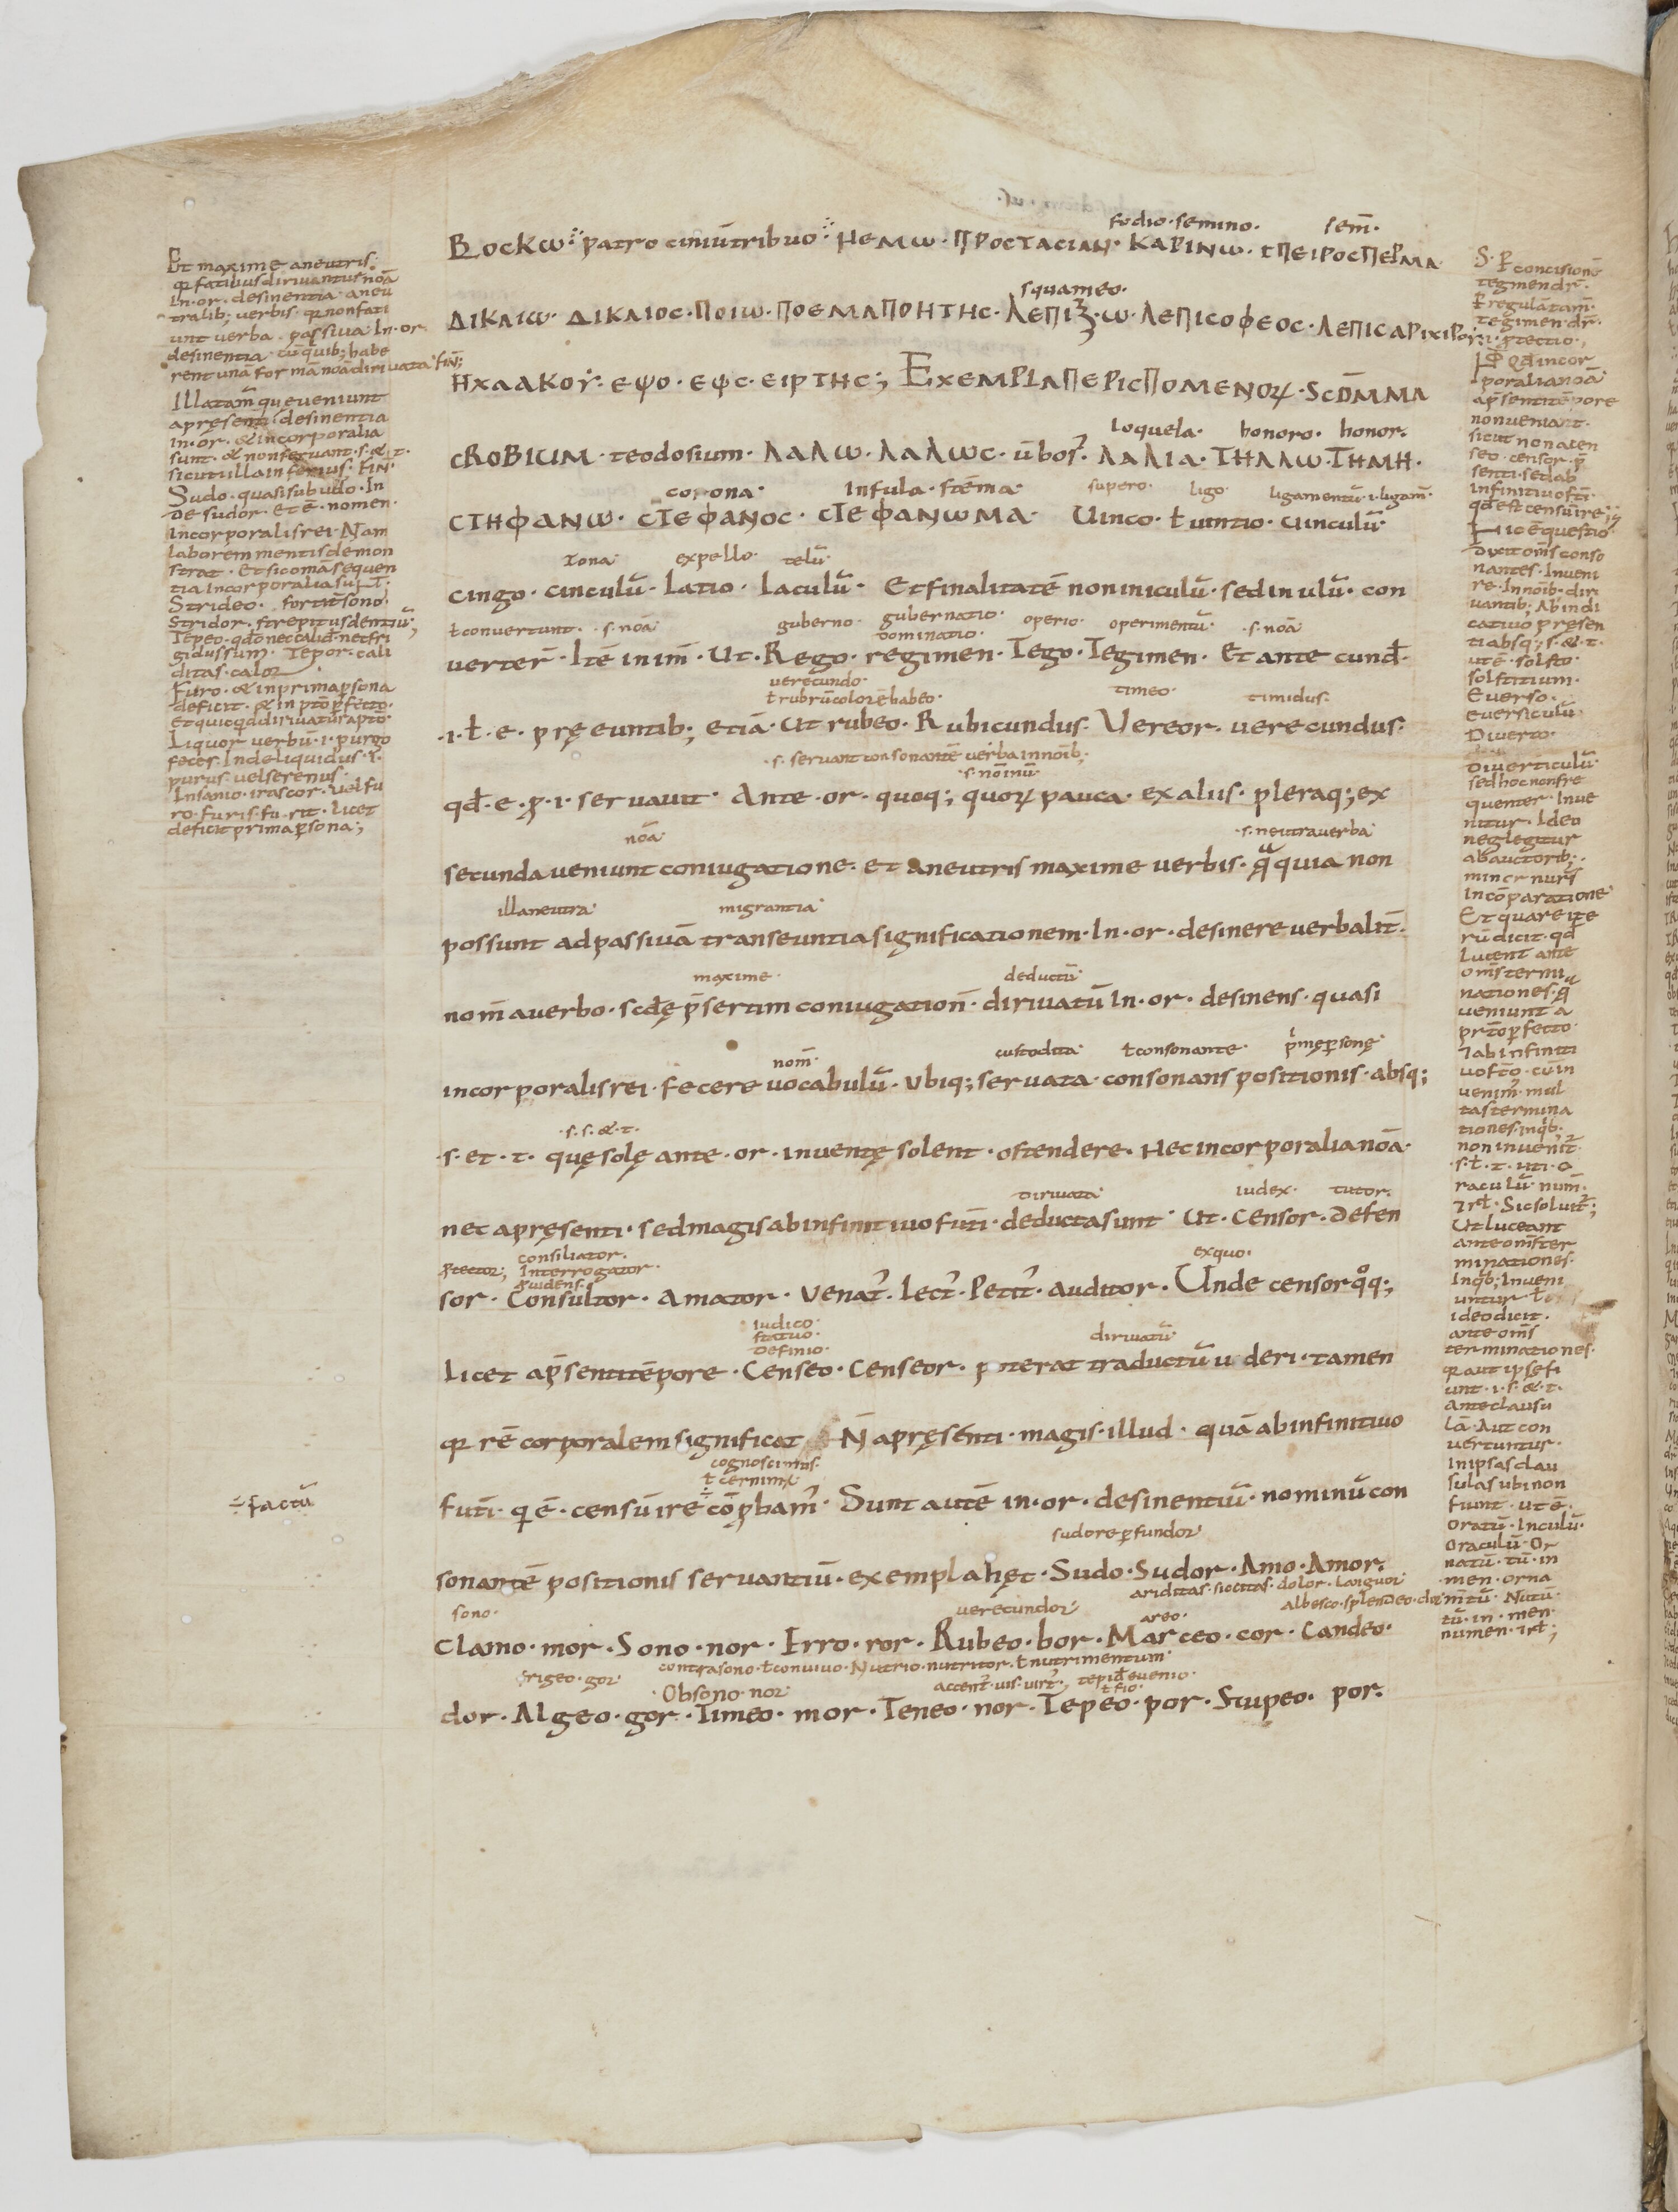 fodio · semino · sem̄ ·
Boskω · patrociniūtribuo · Hemω · ΠΡΟCΤΑCΙΑΝ · ΚΑΡΙΝω · CΠΕΙΡΟCΠΕΡΜΑ
squameo ·
ΔΙΚΑΙω · ΔΙΚΑΙΟC · ΠΟΙω · ΠΟΕΜΑΠΟΗΤΗC · ΛΕΠΙΖ · ω · ΛΕΠΙCΟΦΕΟC ·
ΕΨΟ · ΕΦC · ΕΙΡΤΗC ; EXEMPLAΠΕΡΙCΠΟΜΕΝΟꝜ ·
loquela · honoro · honor ·
CROBICIM · teodosium · ΛΑΛω · ΛΑΛωC · ūbosˀ · ΛΑΛΙΑ · ΤΗΛΛω · ΤΗΜΗ ·
corona · Infula · stēma · supero · ligo · ligamentū · i · ligam̄ ·
CΤΗΦΑΝω · CΤΕΦΑΝΟC · CΤΕΦΑΝωΜΑ · Uinco · ł uintio · Uinculū ·
zona · expello · telū ·
cingo · cinculū · Iatio · Iaculū · Et finalitatē non iniculū · sed in ulū · con
ł convertunt · s · noā · guberno · gubernatio · dominatio · operio · operimentū · s · noā
verter̄ · Itē in im̄ · Ut · Rego · regimen · Tego · Tegimen · Et ante cund̄ ·
verecundo · ł rubrū colorē habeo · timeo · timidus ·
· i · ł · e · pręeuntib; etiā · ut rubeo · Rubicundus · Vereor · verecundus ·
· s · servant consonantē verba in noīb;
· s · noīnū
qd̄ · e · p̱ · i · servavit · Ante · or · quoq; quoꝝ pauca · ex aliis · pleraq; ex
noā · s · neutra verba
secunda veniunt coniugatione · et a neutris maxime verbis · quia non
illa neutra · migrantia
possunt ad passivā transeuntia significationem · In · or · desinere verbalit̄ ·
maxime · deductū
nom̄ a verbo · scdę p̄sertim coniugation̄ · dirivatū In · or · desinens · quasi
nom̄ · custodita · ł consonante · pⁱmę ꝑsonę
incorporalis rei · fecere vocabulū · Ubiq; servata · consonans positionis · absq;
· s · s · & · t ·
· s · et · t · quę solę ante · or · inventę solent · ostendere · Hec incorporalia noā ·
dirivata · iudex · tutor ·
nec a pręsenti · sed magis ab infinitivo futī · deducta sunt · Ut · Censor · Defen
ꝓtector; consiliator · Interrogator · ꝓuidens · exquo ·
sor · Consultor · Amator · Venatˀ · Lectˀ · Petitˀ · auditor · Unde censor qͦq;
iudico · statuo · definio · dirivatū
Licet ap̄senti tēpore · Censeo · Censeor · poterat traductū uideri · tamen
rē corporalem significat · N̄ a pręsenti · magis · illud · quā ab infinitivo
cognoscimus · ł cernimˀ
futī · qⁱ ē · censū ire cōꝓbamˀ · Sunt autē in · or · desinentiū · nominū con
sudore ꝑfundor
sonantē positionis servantiū · exempla hęc · Sudo · Sudor · Amo · Amor ·
sono · verecundor · areo · ariditas · siccitas · dolor · languor · Albesco · splendeo
Clamo · mor · Sono · nor · Erro · ror · Rubeo · bor · Marceo · cor · Candeo ·
frigeo · gor · contra sono · ł convivo · Nutrio · nutritor · ł nutrimentum
· Obsono · nor · tepid̄ evenio · ł fio ·
dor · Algeo · gor · Timeo · mor · Teneo · nor · Tepeo · por · Stupeo · por ·
Et maxime a neutris ·
facilius dirivantur noā
In · or · desinentia · aneu
tralib; verbis · non fati
unt verba · passiva In · or
desinentia · tū quib; habe
rent unā formā noā dirivata · Fin̄;
Illa tam̄ que veniunt
apręsenti desinentia
in · or · & incorporalia
sunt · & non servant · s · & · t ·
sicut illa inferius · FIN̄ ·
Sudo · quasi subudo · In
de sudor · Et ē · nomen ·
Incorporalis rei · Nam
laborem mentis demon
strat · Et sic oma sequen
tia Incorporalia st̄ ·
Strideo · fortit̄ sono ·
Stridor · strepitus dentiū;
Tepeo · qd̄o nec calid̄ · nec fri
gidus sum · Tepor · cali
ditas · calor
Furo · & in prima ꝑsona
deficit · & in p̄tō ꝑfecto ·
Et quicqͥd dirivatur a p̄tō ·
Liquor verbū · i · purgo
feces · Inde liquidus · i ·
purus · vel serenus ·
Insanio · irascor · vel fu
ro · furis · furit · licet
deficit prima ꝑsona;
÷ factū
S · ꝑ concisionē
tegmen dr̄ ·
ꝑ regulā tam̄ ·
tegimen · dr̄ ·
· i · ꝓtectio ·
qd̄ incor
poralia noā
ap̄senti tēpore
non veniant ·
sicut non a cen
seo · censor · p̄
senti · sed ab
infinitivo fti ·
qd̄ est censū ire;
Hic ē questio
Dixit om̄s conso
nantes · Inveni
re · In noīb · diri
vantib; Ab indi
cativo pręsen
ti absq; s · & · t ·
ut ē · solsto ·
solstitium ·
Everso ·
everticulū
Diverto ·
diverticulū
sed hoc non fre
quenter · Inve
nitur · Ideo
neglegitur
ab auctorib; ·
In cōparatione
Et quare ite
rū dicit · qd
lucent ante
om̄s termi
nationes ·
veniunt a
prt̄o ꝑfecto
⁊ ab infiniti
vo fto · cū in
venim̄ · mul
tas termina
tiones · in qⁱb; ·
non invenit̄
· s · ł · t · uti · o
raculū · num̄ ·
⁊ rł · Sic solvit̄;
Ut luceant
ante om̄s ter
minationes ·
In qⁱb; Inveni
untur
ideo dicit ·
ante om̄s
terminationes ·
aut ipsę fi
unt · i · s · & · t ·
Ante clausu
lā · Aut con
vertuntur ·
In ipsas clau
sulas ubi non
fiunt · ut ē ·
oratū · In culū ·
oraculū · Or
natū · tū · in
men · orna
m̄tū · Nutū ·
tū · in · men ·
numen · ⁊ rł;